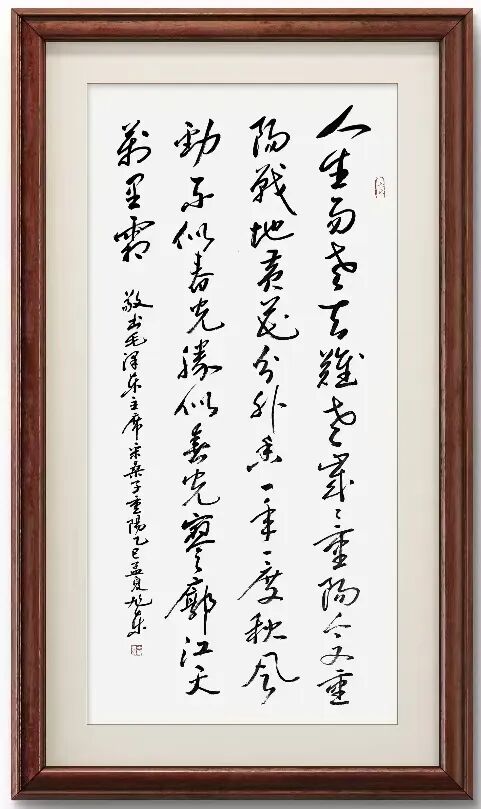 人生易老天難老歲々重陽今又重
陽戰地黄花分外香一年一度秋風
勁不似春光勝似春光寥廓江天
萬里霜
敬书毛澤东主席采桑子重陽乙巳孟夏旭东